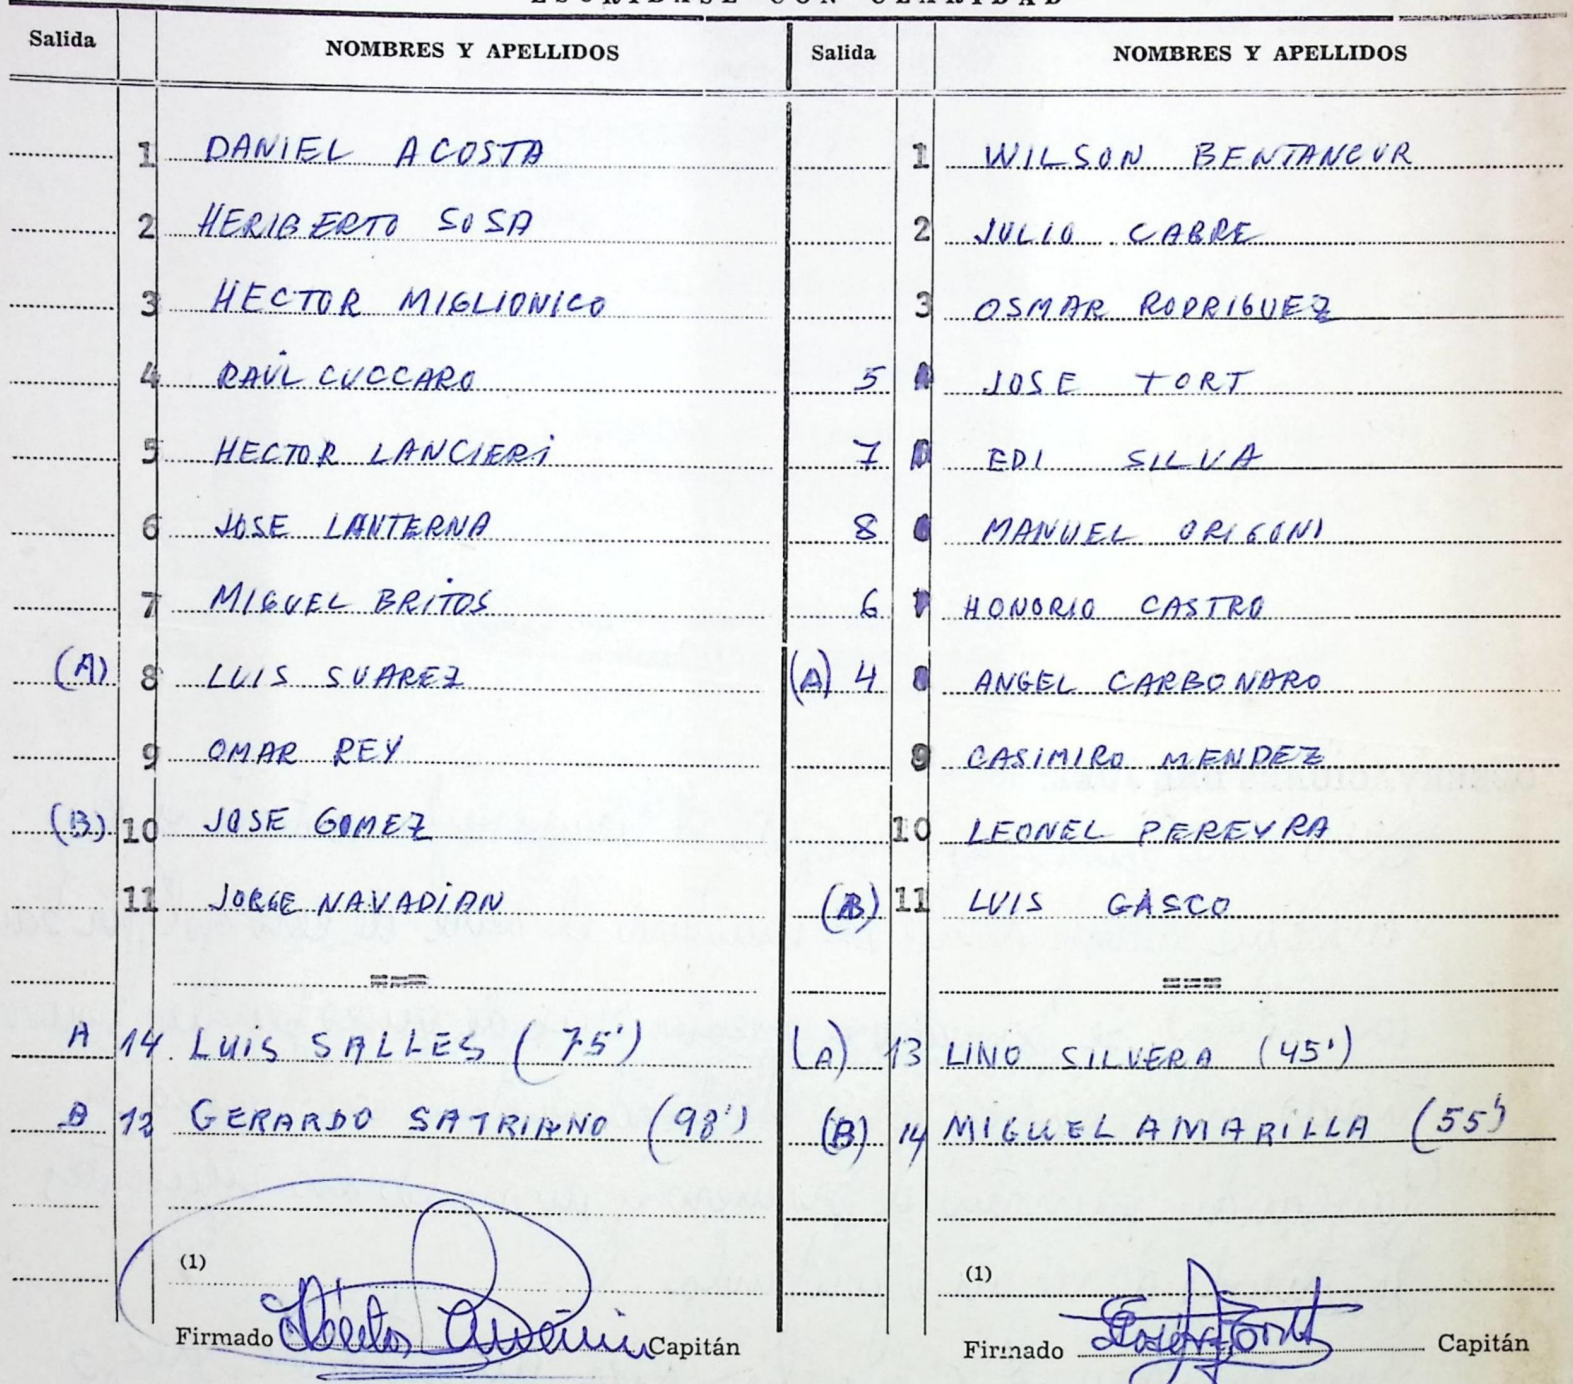 ESCRIBASE CON CLARIDAD
Salida NOMBRES Y APELLIDOS
1 DANIEL ACOSTA
2 HERIBERTO SOSA
3 HECTOR MIGLIONICO
4 RAÚL CUCCARO
5 HECTOR LANCIERI
6 JOSE LANTERNA
7 MIGUEL BRITOS
(A) 8 LUIS SUAREZ
9 OMAR REY
(B) 10 JOSE GOMEZ
11 JORGE NAVADIAN
===
A 14 LUIS SALLES (75')
B 12 GERARDO SATRIANO (98')
(1)
Firmado Capitán
Salida NOMBRES Y APELLIDOS
1 WILSON BENTANCUR
2 JULIO CABRE
3 OSMAR RODRIGUEZ
5 JOSE TORT
7 EDI SILVA
8 MANUEL ORIGONI
6 HONORIO CASTRO
(A) 4 ANGEL CARBONARO
9 CASIMIRO MENDEZ
10 LEONEL PEREYRA
(B) 11 LUIS GASCO
===
(A) 13 LINO SILVERA (45')
(B) 14 MIGUEL AMARILLA (55')
(1)
Firmado Capitán